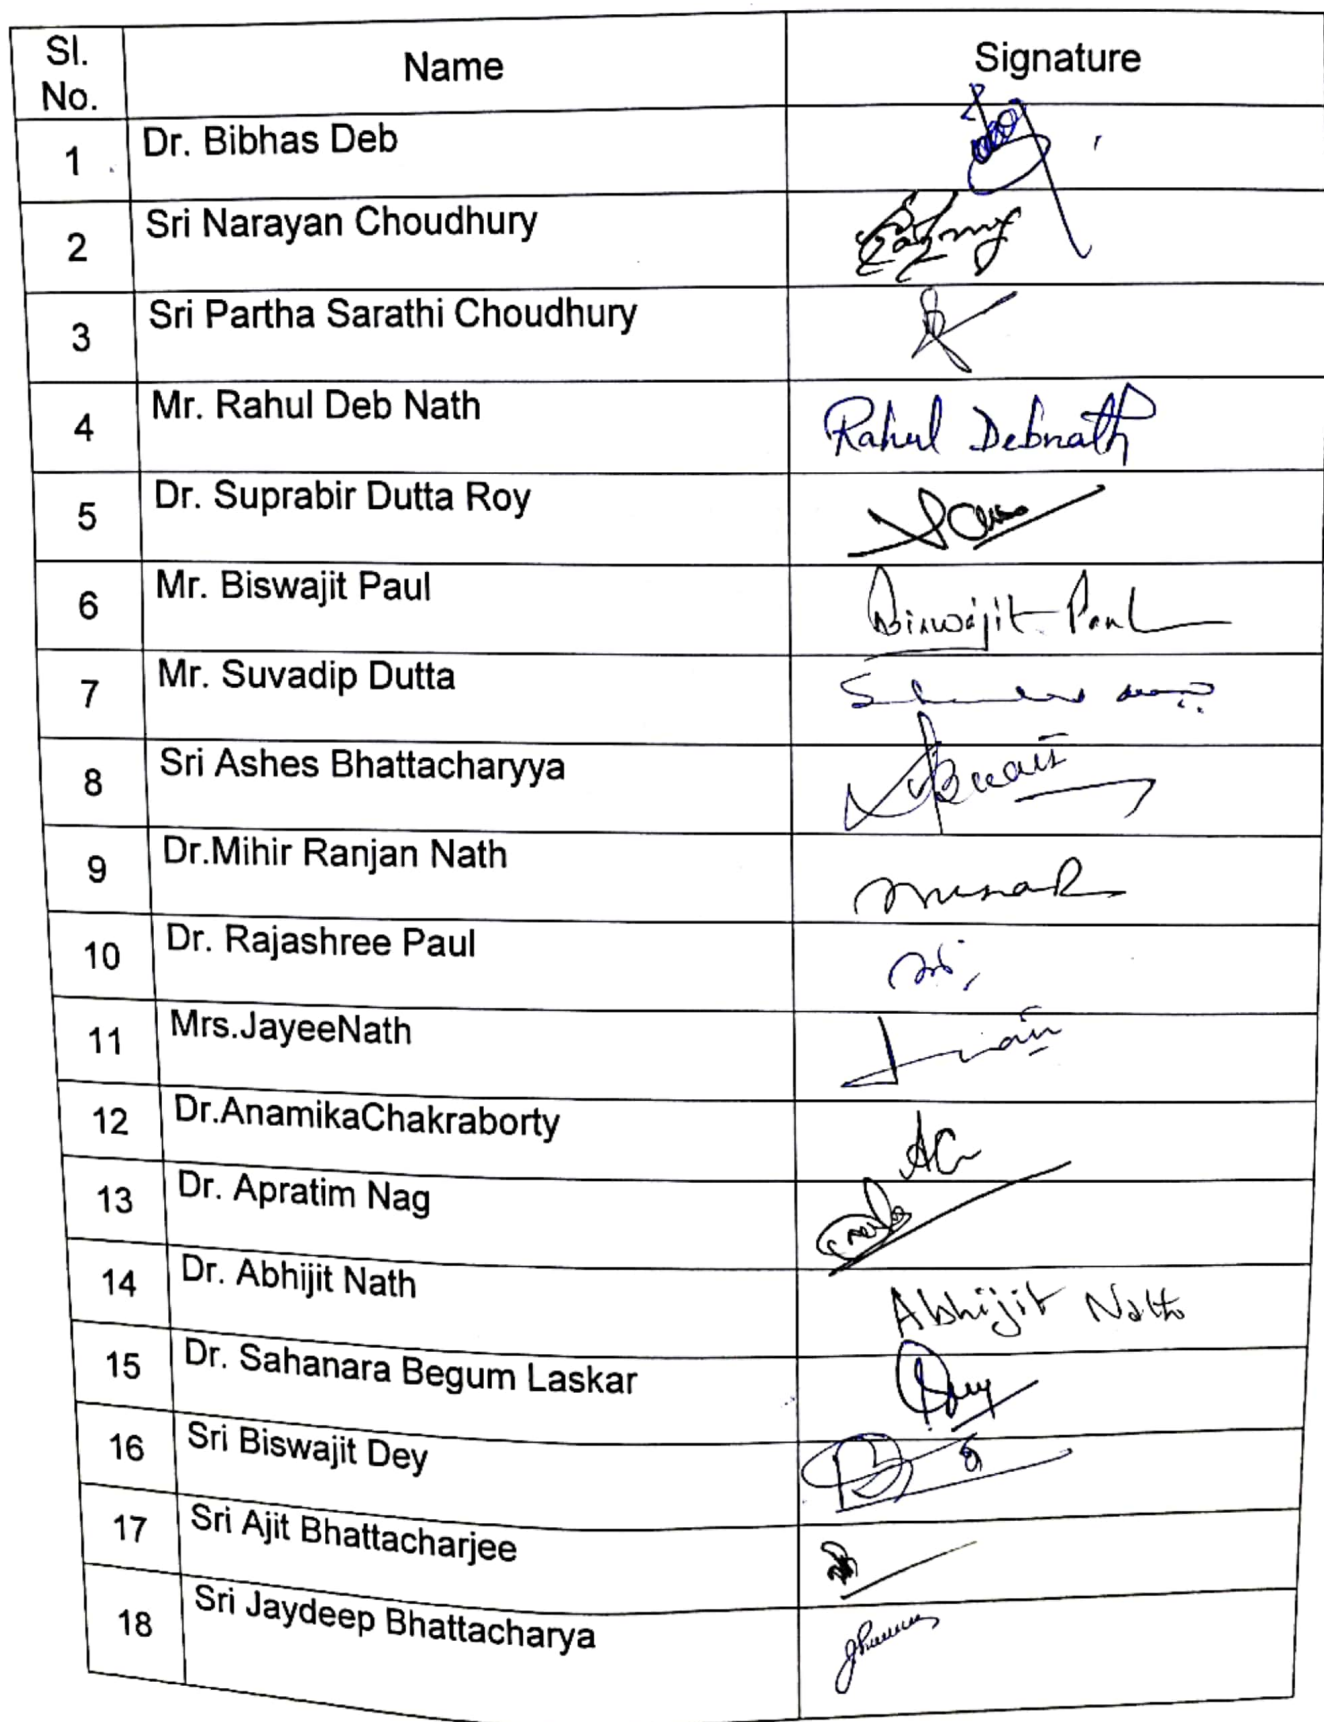 Sl. No. Name Signature
1 Dr. Bibhas Deb
2 Sri Narayan Choudhury
3 Sri Partha Sarathi Choudhury
4 Mr. Rahul Deb Nath Rahul Debnath
5 Dr. Suprabir Dutta Roy
6 Mr. Biswajit Paul Biswajit Paul
7 Mr. Suvadip Dutta
8 Sri Ashes Bhattacharyya
9 Dr.Mihir Ranjan Nath
10 Dr. Rajashree Paul
11 Mrs.JayeeNath
12 Dr.AnamikaChakraborty AC
13 Dr. Apratim Nag
14 Dr. Abhijit Nath Abhijit Nath
15 Dr. Sahanara Begum Laskar
16 Sri Biswajit Dey
17 Sri Ajit Bhattacharjee
18 Sri Jaydeep Bhattacharya